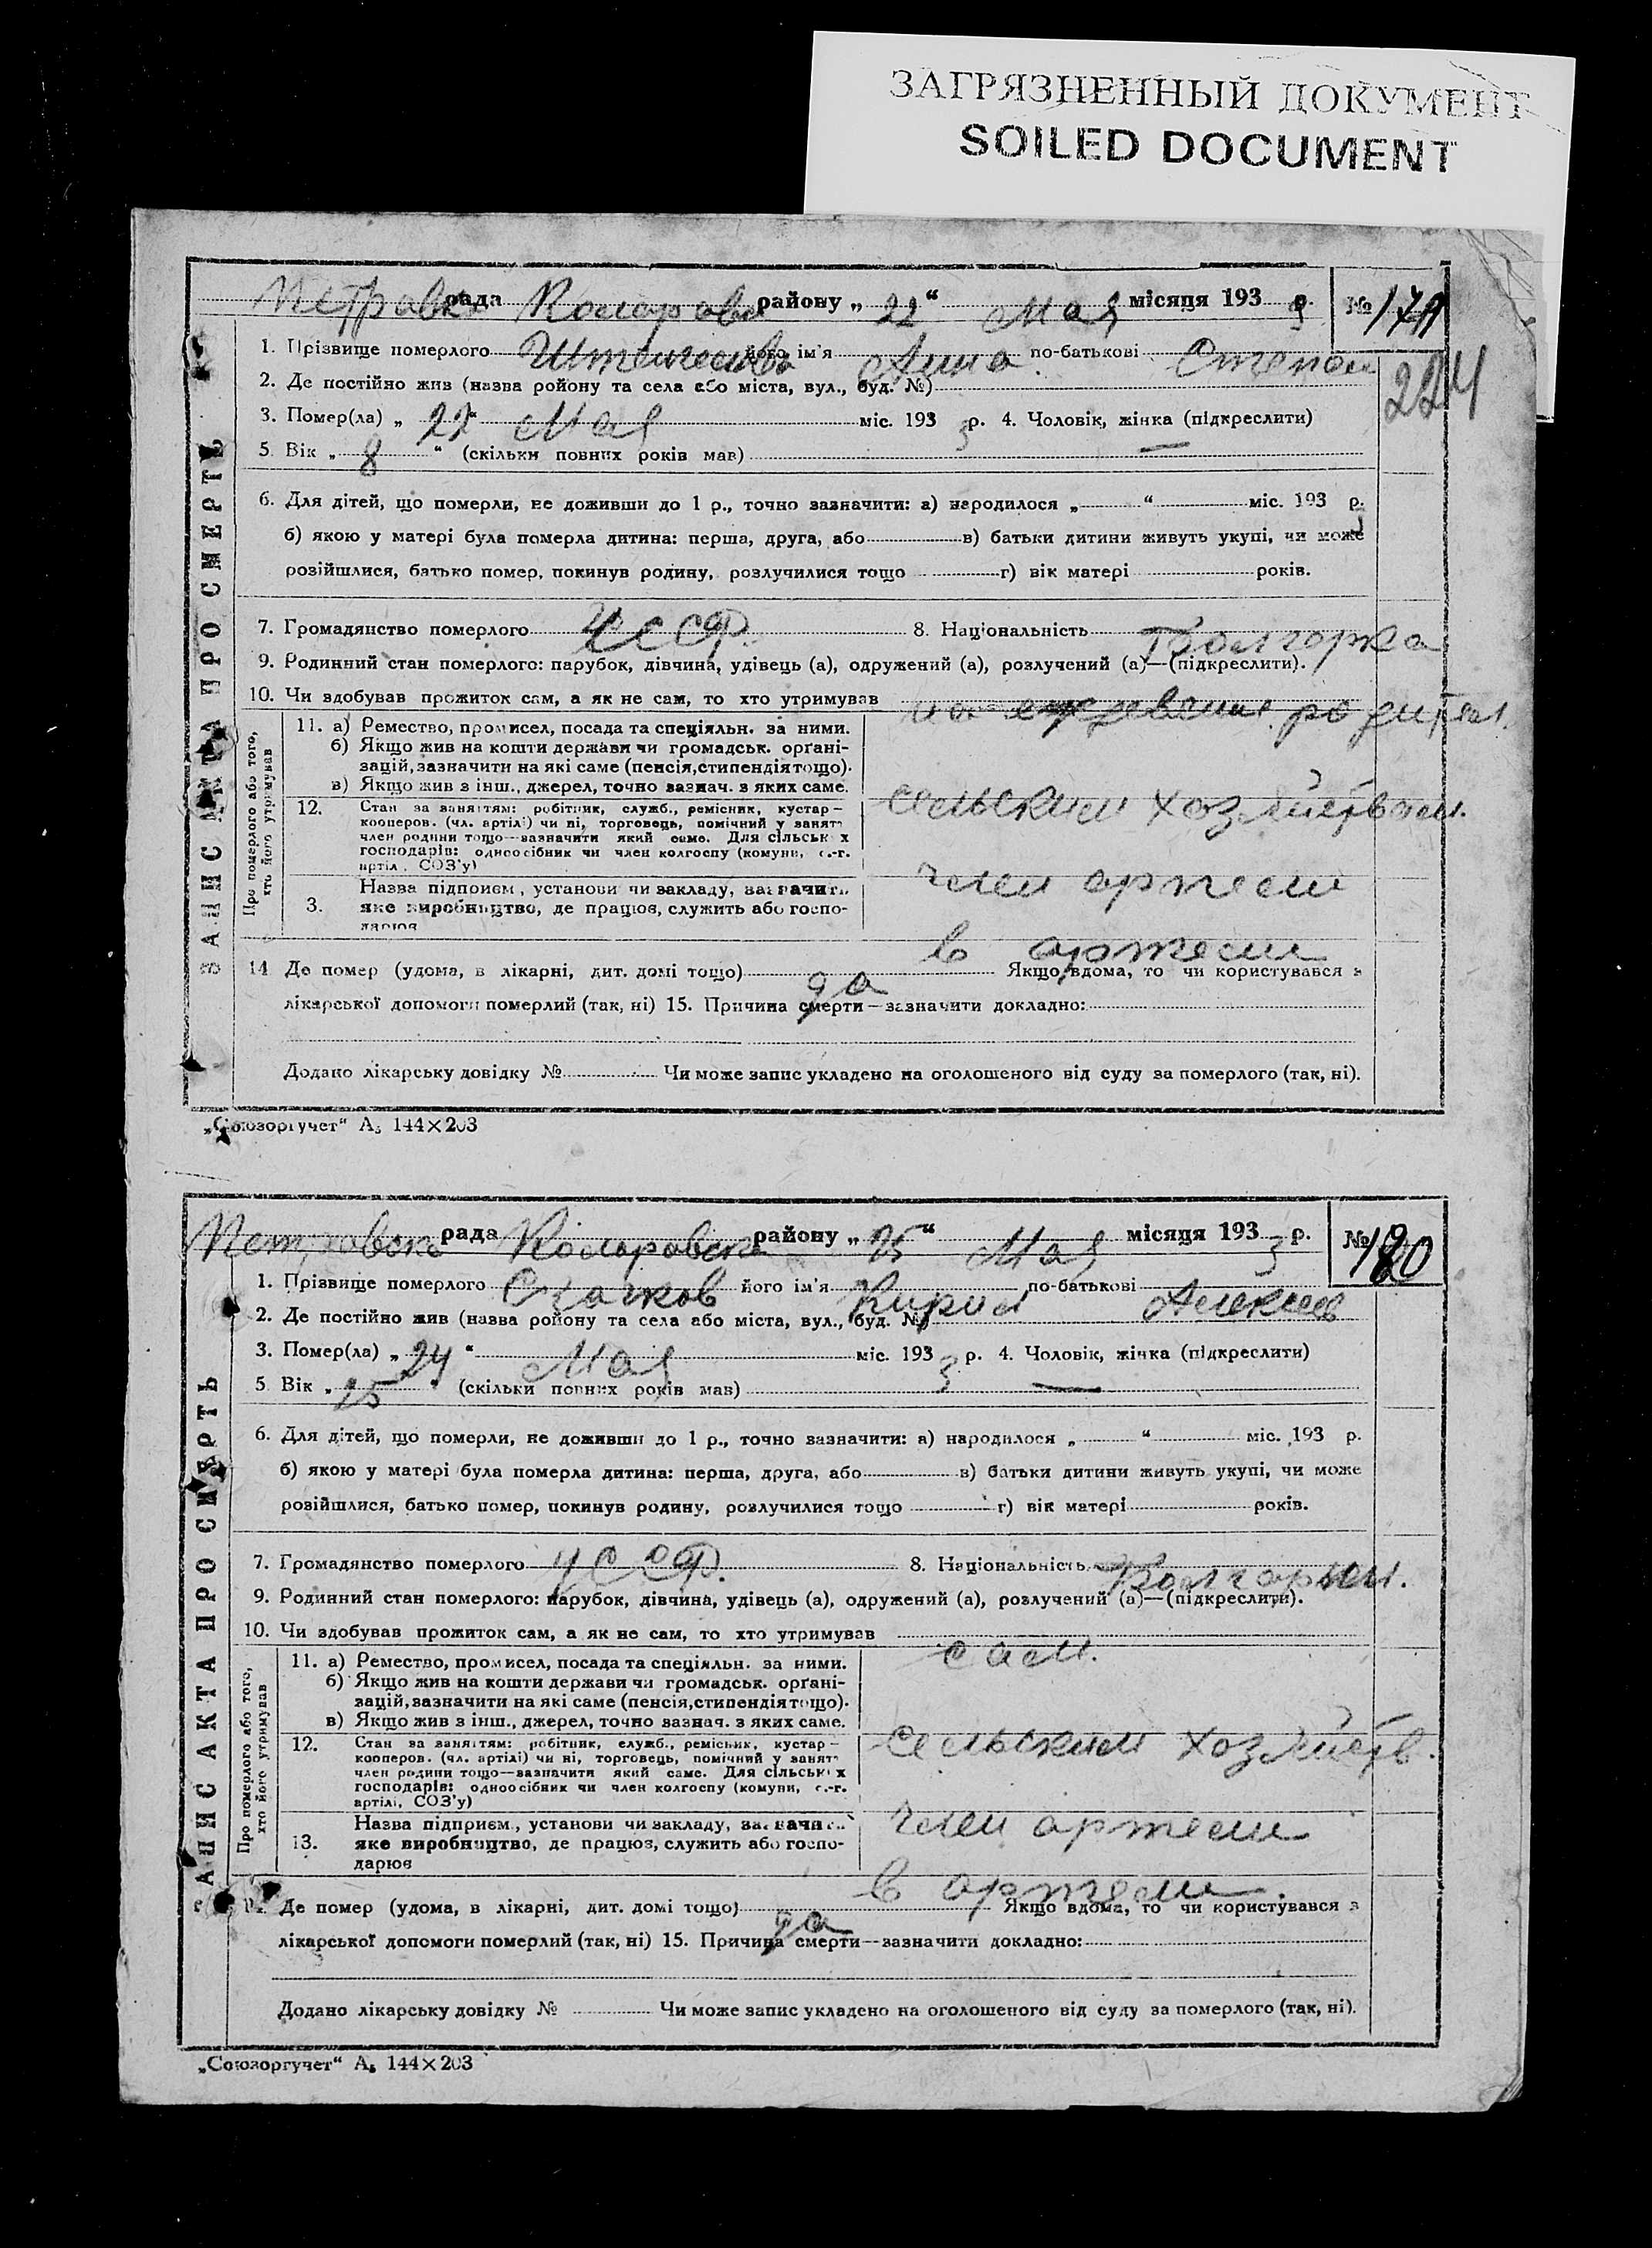 ЗАГРЯЗНЕННЫЙ ДОКУМЕНТ
SOILED DOCUMENT
рада району „ 22 “ Мая місяця 193 3 р. №
1. Прізвище померлого його ім'я Анна по-батькові Степан
224
2. Де постійно жив (назва ройону та села або міста, вул., буд. №)
3. Помер(ла) „ 22 “ Мая міс. 193 3 р. 4. Чоловік, жінка (підкреслити)
5. Вік „ 8 “ (скільки повних років мав)
6. Для дітей, що померли, не доживши до 1 р., точно зазначити: а) народилося „ “ міс. 193 р.
б) якою у матері була померла дитина: перша, друга, або в) батьки дитини живуть укупі, чи може
розійшлися, батько помер, покинув родину, розлучилися тощо г) вік матері років.
7. Громадянство померлого УССР. 8. Національність Болгорка
9. Родинний стан померлого: парубок, дівчина, удівець (а), одружений (а), розлучений (а)—(підкреслити).
10. Чи здобував прожиток сам, а як не сам, то хто утримував на родител.
ЗАПИС АКТА ПРО СМЕРТЬ
Про померлого або того, хто його утримував
11. а) Ремество, промисел, посада та спеціяльн. за ними.
б) Якщо жив на кошти держави чи громадськ. орґані-
зацій, зазначити на які саме (пенсія, стипендія тощо).
в) Якщо жив з інш., джерел, точно зазнач. з яких саме.
сельским хозяйством.
12. Стан за заняттям: робітник, служб., ремісник, кустар—
кооперов. (чл. артілі) чи ні, торговець, помічний у занят.
член родини тощо—зазначити який саме. Для сільськ х
господарів: одноосібник чи член колгоспу (комуни, с.-г.
артіл , СОЗ'у)
член артели
3. Назва підприєм., установи чи закладу, зазначити
яке виробництво, де працює, служить або госпо-
дарює
в артели
14 Де помер (удома, в лікарні, дит. домі тощо) да Якщо вдома, то чи користувався з
лікарської допомоги померлий (так, ні) 15. Причина смерти—зазначити докладно:
Додано лікарську довідку № Чи може запис укладено на оголошеного від суду за померлого (так, ні).
„Союзоргучет“ А₅ 144×203
Петровск рада Коларовск району „ 25 “ Мая місяця 193 3 р. № 180
1. Прізвище померлого його ім'я Кирил по-батькові Алексеев
2. Де постійно жив (назва ройону та села або міста, вул., буд. №)
3. Помер(ла) „ 24 “ Мая міс. 193 3 р. 4. Чоловік, жінка (підкреслити)
5 Вік „ 25 “ (скільки повних років мав)
6. Для дітей, що померли, не доживши до 1 р., точно зазначити: а) народилося „ “ міс. 193 р.
б) якою у матері була померла дитина: перша, друга, або в) батьки дитини живуть укупі, чи може
розійшлися, батько помер, покинув родину, розлучилися тощо г) вік матері років.
7. Громадянство померлого УССР. 8. Національність Болгарин.
9. Родинний стан померлого: парубок, дівчина, удівець (а), одружений (а), розлучений (а)—(підкреслити).
10. Чи здобував прожиток сам, а як не сам, то хто утримував сам.
ЗАПИС АКТА ПРО СМЕРТЬ
Про померлого або того, хто його утримував
11. а) Ремество, промисел, посада та спеціяльн. за ними.
б) Якщо жив на кошти держави чи громадськ. орґані-
зацій, зазначити на які саме (пенсія, стипендія тощо).
в) Якщо жив з інш., джерел, точно зазнач. з яких саме.
сельским хозяйств.
12. Стан за заняттям: робітник, служб., ремісник, кустар—
кооперов. (чл. артілі) чи ні, торговець, помічний у занят.
член родини тощо—зазначити який саме. Для сільськ х
господарів: одноосібник чи член колгоспу (комуни, с.-г.
артілі, СОЗ'у)
член артели
13. Назва підприєм., установи чи закладу, зазначи
яке виробництво, де працює, служить або госпо-
дарює
в артели.
Де помер (удома, в лікарні, дит. домі тощо) да Якщо вдома, то чи користувався з
лікарської допомоги померлий (так, ні) 15. Причина смерти—зазначити докладно:
Додано лікарську довідку № Чи може запис укладено на оголошеного від суду за померлого (так, ні).
„Союзоргучет“ А₅ 144×203